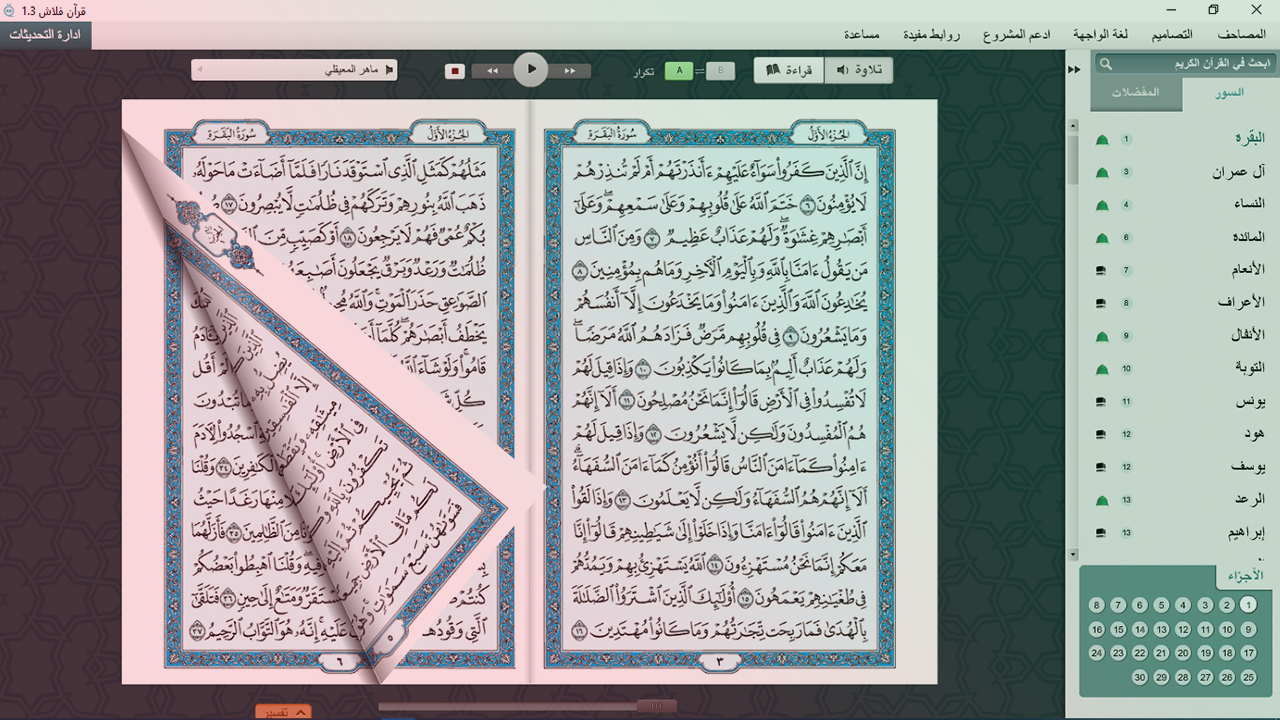 قرآن فلاش 1.3
المصاحف
التصاميم
لغة الواجهة
ادعم المشروع
روابط مفيدة
مساعدة
ادارة التحديثات
ابحث في القرآن الكريم
السور
المفضلات
البقرة 1
آل عمران 3
النساء 4
المائدة 6
الأنعام 7
الأعراف 8
الأنفال 9
التوبة 10
يونس 11
هود 12
يوسف 12
الرعد 13
إبراهيم 13
الأجزاء
1 2 3 4 5 6 7 8
9 10 11 12 13 14 15 16
17 18 19 20 21 22 23 24
25 26 27 28 29 30
تلاوة
قراءة
B
A
تكرار
ماهر المعيقلي
الجزء الأول
سورة البقرة
إِنَّ الَّذِينَ كَفَرُوا سَوَاءٌ عَلَيْهِمْ ءَأَنذَرْتَهُمْ أَمْ لَمْ تُنذِرْهُمْ
لَا يُؤْمِنُونَ ٦ خَتَمَ اللَّهُ عَلَىٰ قُلُوبِهِمْ وَعَلَىٰ سَمْعِهِمْ ۖ وَعَلَىٰ
أَبْصَارِهِمْ غِشَاوَةٌ ۖ وَلَهُمْ عَذَابٌ عَظِيمٌ ٧ وَمِنَ النَّاسِ
مَن يَقُولُ ءَامَنَّا بِاللَّهِ وَبِالْيَوْمِ الْآخِرِ وَمَا هُم بِمُؤْمِنِينَ ٨
يُخَادِعُونَ اللَّهَ وَالَّذِينَ ءَامَنُوا وَمَا يَخْدَعُونَ إِلَّا أَنفُسَهُمْ
وَمَا يَشْعُرُونَ ٩ فِي قُلُوبِهِم مَّرَضٌ فَزَادَهُمُ اللَّهُ مَرَضًا ۖ
وَلَهُمْ عَذَابٌ أَلِيمٌ بِمَا كَانُوا يَكْذِبُونَ ١٠ وَإِذَا قِيلَ لَهُمْ
لَا تُفْسِدُوا فِي الْأَرْضِ قَالُوا إِنَّمَا نَحْنُ مُصْلِحُونَ ١١ أَلَا إِنَّهُمْ
هُمُ الْمُفْسِدُونَ وَلَٰكِن لَّا يَشْعُرُونَ ١٢ وَإِذَا قِيلَ لَهُمْ
ءَامِنُوا كَمَا ءَامَنَ النَّاسُ قَالُوا أَنُؤْمِنُ كَمَا ءَامَنَ السُّفَهَاءُ ۗ
أَلَا إِنَّهُمْ هُمُ السُّفَهَاءُ وَلَٰكِن لَّا يَعْلَمُونَ ١٣ وَإِذَا لَقُوا
الَّذِينَ ءَامَنُوا قَالُوا ءَامَنَّا وَإِذَا خَلَوْا إِلَىٰ شَيَاطِينِهِمْ قَالُوا إِنَّا
مَعَكُمْ إِنَّمَا نَحْنُ مُسْتَهْزِءُونَ ١٤ اللَّهُ يَسْتَهْزِئُ بِهِمْ وَيَمُدُّهُمْ
فِي طُغْيَانِهِمْ يَعْمَهُونَ ١٥ أُولَٰئِكَ الَّذِينَ اشْتَرَوُا الضَّلَالَةَ
بِالْهُدَىٰ فَمَا رَبِحَت تِّجَارَتُهُمْ وَمَا كَانُوا مُهْتَدِينَ ١٦
٣
الجزء الأول
سورة البقرة
مَثَلُهُمْ كَمَثَلِ الَّذِي اسْتَوْقَدَ نَارًا فَلَمَّا أَضَاءَتْ مَا حَوْلَهُ
ذَهَبَ اللَّهُ بِنُورِهِمْ وَتَرَكَهُمْ فِي ظُلُمَاتٍ لَّا يُبْصِرُونَ ١٧
بُكْمٌ عُمْيٌ فَهُمْ لَا يَرْجِعُونَ ١٨ أَوْ كَصَيِّبٍ مِّنَ
ظُلُمَاتٌ وَرَعْدٌ وَبَرْقٌ يَجْعَلُونَ
الصَّوَاعِقِ حَذَرَ الْمَوْتِ ۚ وَاللَّهُ
يَخْطَفُ أَبْصَارَهُمْ ۖ كُلَّمَا
قَامُوا ۚ وَلَوْ شَاءَ
تُبْدُونَ
اسْجُدُوا لِآدَمَ
الْكَافِرِينَ ٣٤ وَقُلْنَا
مِنْهَا رَغَدًا حَيْثُ
مِنَ الظَّالِمِينَ ٣٥ فَأَزَلَّهُمَا
فِيهِ ۖ وَقُلْنَا اهْبِطُوا بَعْضُكُمْ
كُنتُمْ
مُسْتَقَرٌّ وَمَتَاعٌ إِلَىٰ حِينٍ ٣٦ فَتَلَقَّىٰ
الَّتِي وَقُودُهَا
عَلَيْهِ ۚ إِنَّهُ هُوَ التَّوَّابُ الرَّحِيمُ ٣٧
٥
٦
تفسير